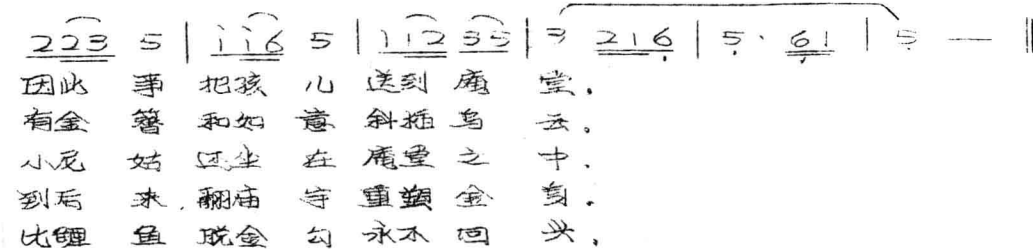 2 2 3 5 | i i 6 5 | 1 1 2 3 5 | 3 2 1 6 | 5 · 6 1 | 5 — ‖
因此 事 把孩 儿 送到 庵 堂.
有金 簪 和如 意 斜插 乌 云.
小尼 姑 还坐 在 庵堂 之 中.
到后 来, 翻庙 寺 重塑 金 身.
比鲤 鱼 脱金 勾 永不 回 头.